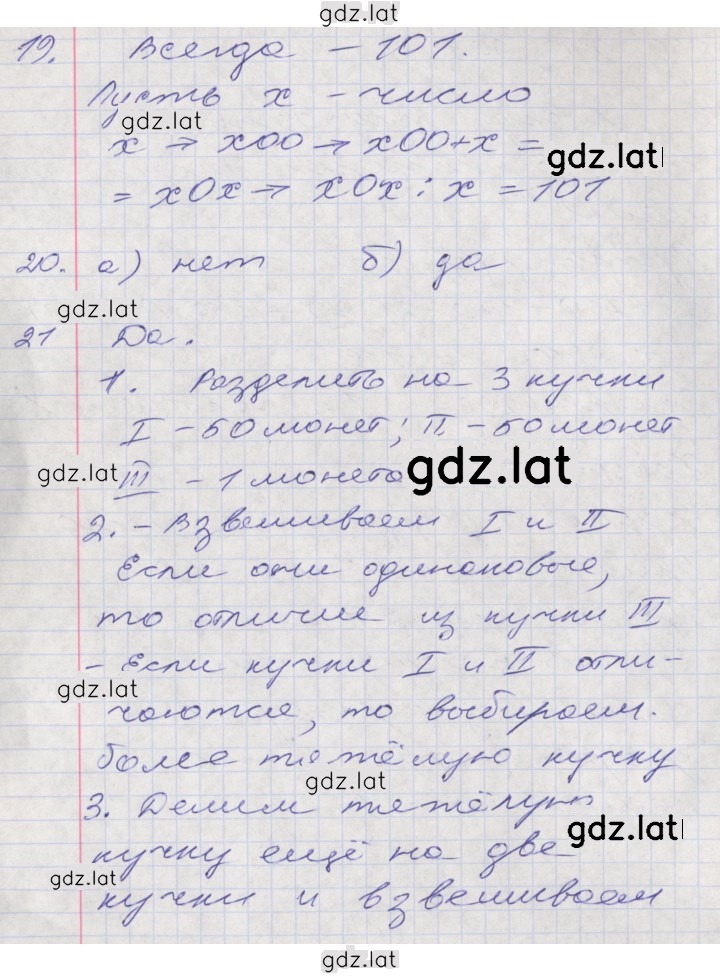 gdz.lat
19. Всегда – 101.
Пусть x – число
gdz.lat
x → x00 → x00+x =
gdz.lat
= x0x → x0x : x = 101
20. а) нет б) да
gdz.lat
21 Да.
1. Разделить на 3 кучки
I – 50 монет; II – 50 монет
gdz.lat
III – 1 монета
gdz.lat
2. – Взвешиваем I и II
Если они одинаковые,
то отличие из кучки III
– Если кучки I и II отли-
gdz.lat
чаются, то выбираем.
более тяжёлую кучку
gdz.lat
3. Делим тяжёлую
gdz.lat
кучку ещё на две
gdz.lat
кучки и взвешиваем
gdz.lat